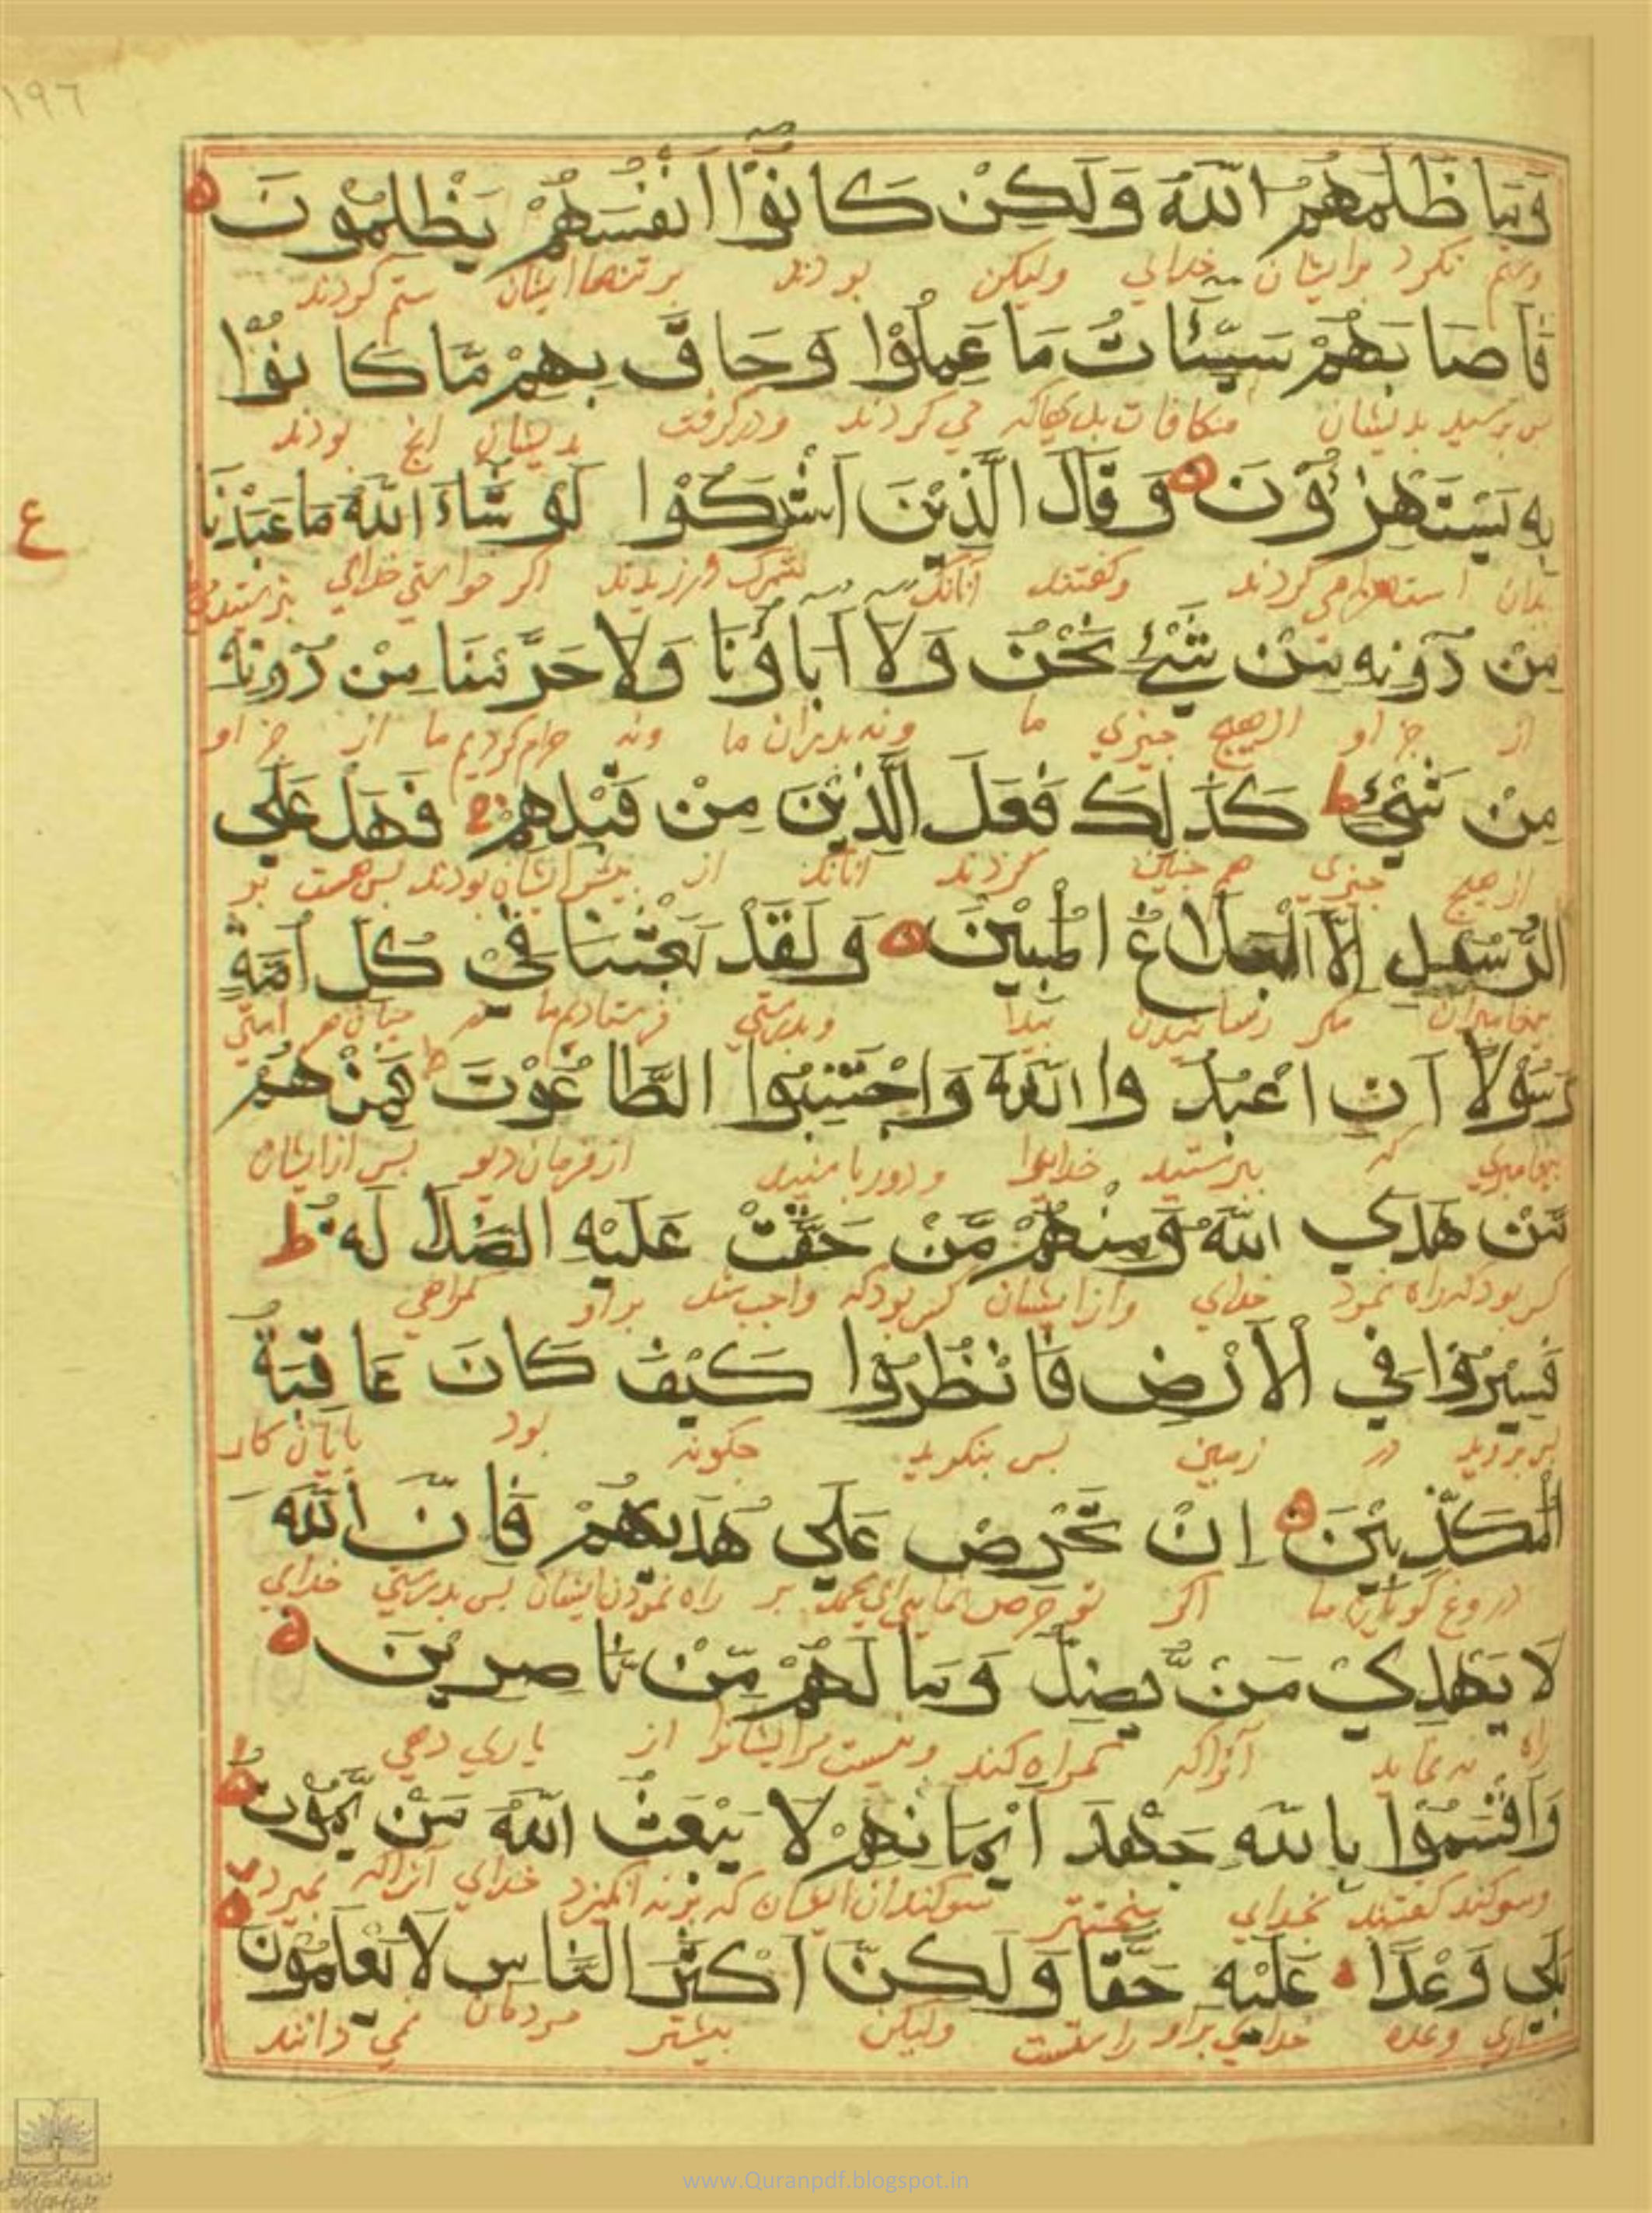 ١٩٦
وَمَا ظَلَمَهُمُ اللّٰهُ وَلَكِنْ كَانُوْا اَنْفُسَهُمْ يَظْلِمُوْنَ
وستم نكرد برايشان خدايي وليكن بودند بر تنهاايشان ستم كردند
فَاَصَابَهُمْ سَيِّئَاتُ مَا عَمِلُوْا وَحَاقَ بِهِمْ مَّا كَانُوْا
بس برسيد بديشان مكافات مي كردند ودركرفت بديشان انچ بودند
بِهٖ يَسْتَهْزِؤُوْنَ وَقَالَ الَّذِيْنَ اَشْرَكُوْا لَوْ شَاءَ اللّٰهُ مَا عَبَدْنَا
ع
بدان استهزا مي كردند وكفتند آنانك شرك ورزيدند اكر خواستي خداي
مِنْ دُوْنِهٖ مِنْ شَيْءٍ نَّحْنُ وَلَا آبَاؤُنَا وَلَا حَرَّمْنَا مِنْ دُوْنِهٖ
از جز او از هيچ چيزي ما ونه بدران ما ونه حرام كرديم ما از جز او
مِنْ شَيْءٍ ط كَذٰلِكَ فَعَلَ الَّذِيْنَ مِنْ قَبْلِهِمْ فَهَلْ عَلَي
از هيچ چيزي هم چنين كردند آنانك از بيش ايشان بودند بس هست بر
الرُّسُلِ اِلَّا الْبَلَاغُ الْمُبِيْنُ وَلَقَدْ بَعَثْنَا فِيْ كُلِّ اُمَّةٍ
بيغامبران مكر رسانيدن بيدا وبدرستي فرستاديم ما در ميان هر امتي
رَسُوْلًا اَنِ اعْبُدُوا اللّٰهَ وَاجْتَنِبُوا الطَّاغُوْتَ فَمِنْهُمْ
بيغامبري كه ببرستيد خدايرا ودور باشيد از فرمان ديو بس از ايشان
مَّنْ هَدَي اللّٰهُ وَمِنْهُمْ مَّنْ حَقَّتْ عَلَيْهِ الضَّلَالَهُ ط
كس بود كه راه نمود خداي واز ايشان كس بود كه واجب شد براو كمراهي
فَسِيْرُوْا فِي الْاَرْضِ فَانْظُرُوْا كَيْفَ كَانَ عَاقِبَةُ
بس برويد در زمين بس بنكريد جكونه بود بايان كار
الْمُكَذِّبِيْنَ اِنْ تَحْرِصْ عَلَي هُدٰيهُمْ فَاِنَّ اللّٰهَ
دروغ كويان ما اكر تو حرص نمايي بر راه نمودن ايشان بس بدرستي خداي
لَا يَهْدِيْ مَنْ يُّضِلُّ وَمَا لَهُمْ مِّنْ نَّاصِرِيْنَ
راه نه نمايد آنراكه كمراه كند ونيست مرايشانرا از ياري دهي
وَاَقْسَمُوْا بِاللّٰهِ جَهْدَ اَيْمَانِهِمْ لَا يَبْعَثُ اللّٰهُ مَنْ يَّمُوْتُ
وسوكند كفتند بخداي سختتر سوكندان ايشان كه برنه انكيزد خداي آنراكه بميرد
بَلٰي وَعْدًا عَلَيْهِ حَقًّا وَلَكِنَّ اَكْثَرَ النَّاسِ لَا يَعْلَمُوْنَ
آري وعده خداي براو راستست وليكن بيشتر مردمان نمي دانند
www.Quranpdf.blogspot.in